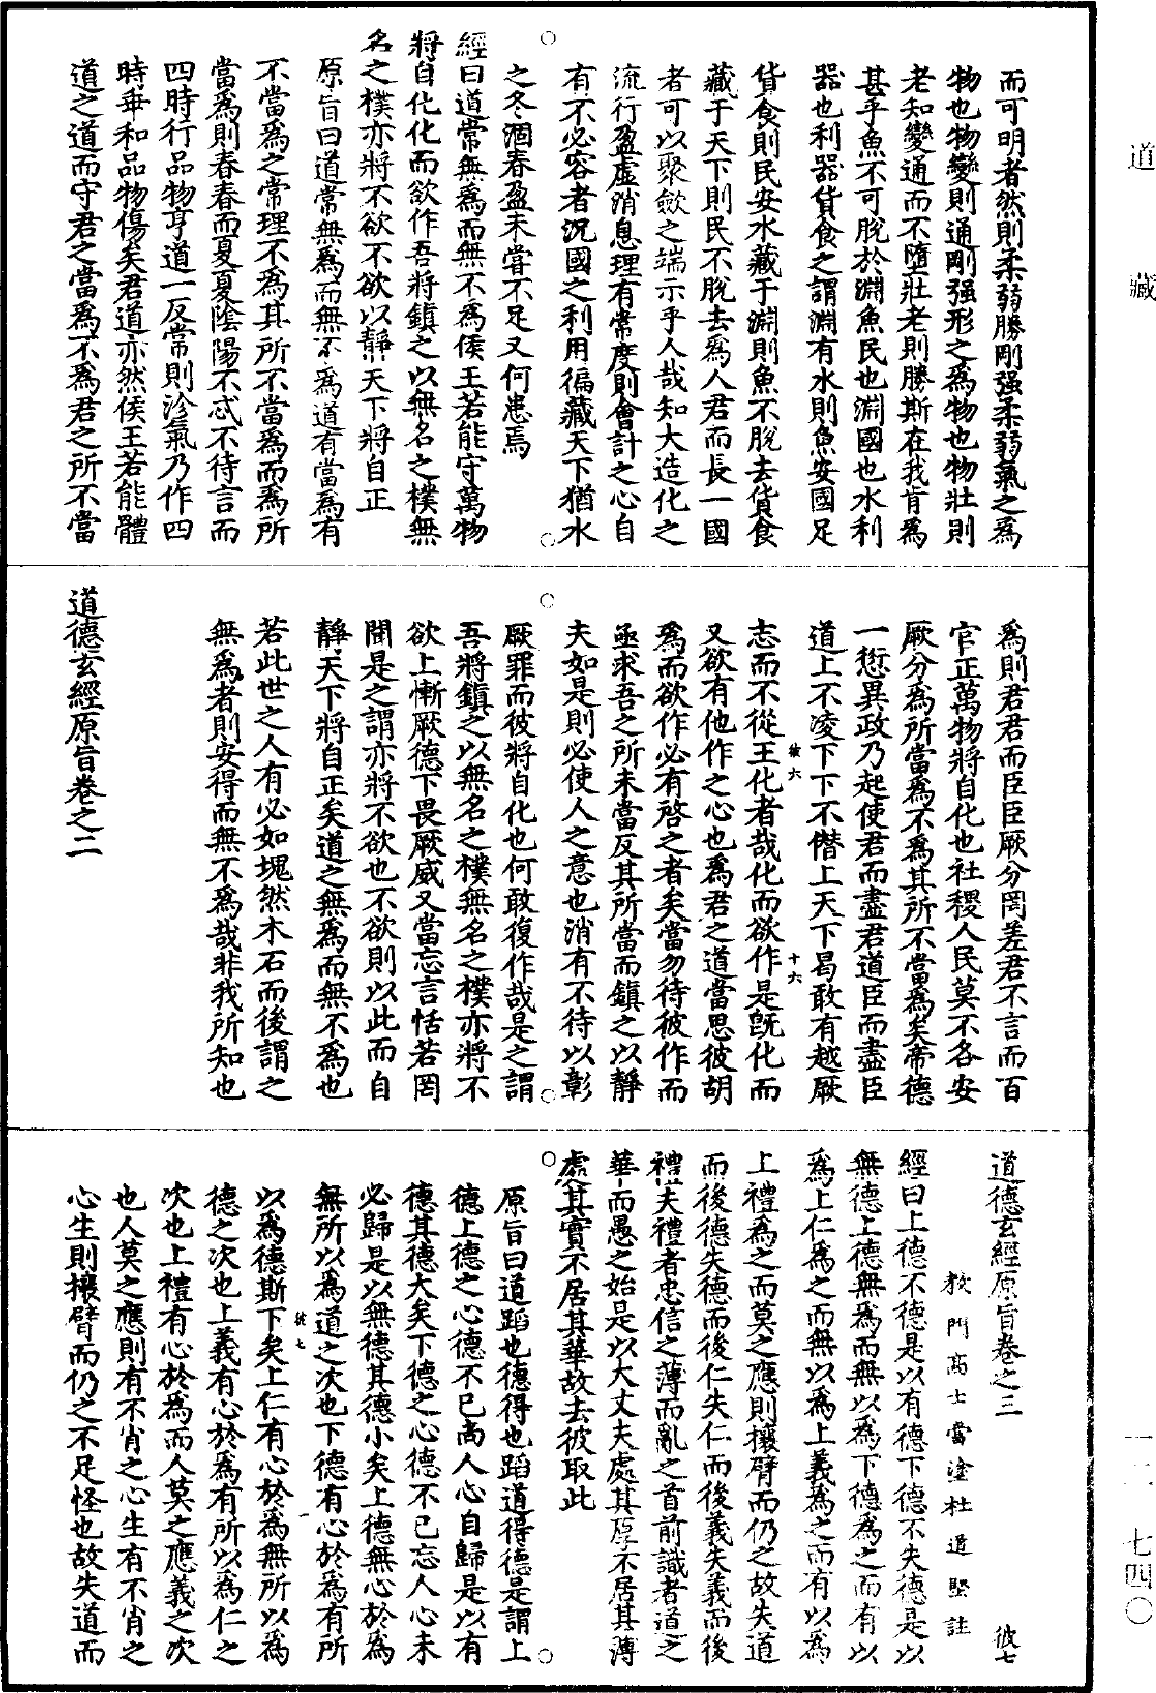 道藏
而可明者然則柔弱勝剛强柔弱氣之爲
物也物變則通剛强形之爲物也物壯則
老知變通而不墮壯老則勝斯在我肯爲
甚乎魚不可脫於淵魚民也淵國也水利
器也利器貨食之謂淵有水則魚安國足
貨食則民安水藏于淵則魚不脫去貨食
藏于天下則民不脫去爲人君而長一國
者可以聚斂之端示乎人哉知大造化之
流行盈虛消息理有常度則會計之心自
有不必容者況國之利用徧藏天下猶水
之冬涸春盈未嘗不足又何患焉
經曰道常無爲而無不爲侯王若能守萬物
將自化化而欲作吾將鎮之以無名之樸無
名之樸亦將不欲不欲以靜天下將自正
原旨曰道常無爲而無不爲道有當爲有
不當爲之常理不爲其所不當爲而爲所
當爲則春春而夏夏陰陽不忒不待言而
四時行品物亨道一反常則沴氣乃作四
時乖和品物傷矣君道亦然侯王若能體
道之道而守君之當爲不爲君之所不當
爲則君君而臣臣厥分罔差君不言而百
官正萬物將自化也社稷人民莫不各安
厥分爲所當爲不爲其所不當爲矣帝德
一愆異政乃起使君而盡君道臣而盡臣
道上不凌下下不僭上天下曷敢有越厥
志而不從王化者哉化而欲作是旣化而
又欲有他作之心也爲君之道當思彼胡
爲而欲作必有啓之者矣當勿待彼作而
亟求吾之所未當反其所當而鎮之以靜
夫如是則必使人之意也消有不待以彰
厥罪而彼將自化也何敢復作哉是之謂
吾將鎮之以無名之樸無名之樸亦將不
欲上慚厥德下畏厥威又當忘言恬若罔
聞是之謂亦將不欲也不欲則以此而自
靜天下將自正矣道之無爲而無不爲也
若此世之人有必如塊然木石而後謂之
無爲者則安得而無不爲哉非我所知也
道德玄經原旨卷之二
道德玄經原旨卷之三 彼七
教門高士當塗杜道堅註
經曰上德不德是以有德下德不失德是以
無德上德無爲而無以爲下德爲之而有以
爲上仁爲之而無以爲上義爲之而有以爲
上禮爲之而莫之應則攘臂而仍之故失道
而後德失德而後仁失仁而後義失義而後
禮夫禮者忠信之薄而亂之首前識者道之
華而愚之始是以大丈夫處其厚不居其薄
處其實不居其華故去彼取此
原旨曰道蹈也德得也蹈道得德是謂上
德上德之心德不已尚人心自歸是以有
德其德大矣下德之心德不已忘人心未
必歸是以無德其德小矣上德無心於爲
無所以爲道之次也下德有心於爲有所
以爲德斯下矣上仁有心於爲無所以爲
德之次也上義有心於爲有所以爲仁之
次也上禮有心於爲而人莫之應義之次
也人莫之應則有不肖之心生有不肖之
心生則攘臂而仍之不足怪也故失道而
一二 七四〇